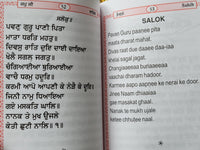 ਸਲੋਕੁ॥
ਪਵਣੁ ਗੁਰੂ ਪਾਣੀ ਪਿਤਾ
ਮਾਤਾ ਧਰਤਿ ਮਹਤੁ॥
ਦਿਵਸੁ ਰਾਤਿ ਦੁਇ ਦਾਈ ਦਾਇਆ
ਖੇਲੈ ਸਗਲ ਜਗਤੁ॥
ਚੰਗਿਆਈਆ ਬੁਰਿਆਈਆ
ਵਾਚੈ ਧਰਮੁ ਹਦੂਰਿ॥
ਕਰਮੀ ਆਪੋ ਆਪਣੀ ਕੇ ਨੇੜੈ ਕੇ ਦੂਰਿ॥
ਜਿਨੀ ਨਾਮੁ ਧਿਆਇਆ
ਗਏ ਮਸਕਤਿ ਘਾਲਿ॥
ਨਾਨਕ ਤੇ ਮੁਖ ਉਜਲੇ
ਕੇਤੀ ਛੁਟੀ ਨਾਲਿ॥
SALOK
Pavan Guru paanee pita
maata dharat mahat.
Divas raat due daaee daa-iaa
khelai sagal jagat.
Changiaaeeaa buriaaeeaa
vaachai dharam hadoor.
Karmee aapo aapnee ke nerai ke door.
Jinee Naam dhiaaiaa
gae masakat ghaal.
Nanak te mukh ujale
ketee chhutee naal.